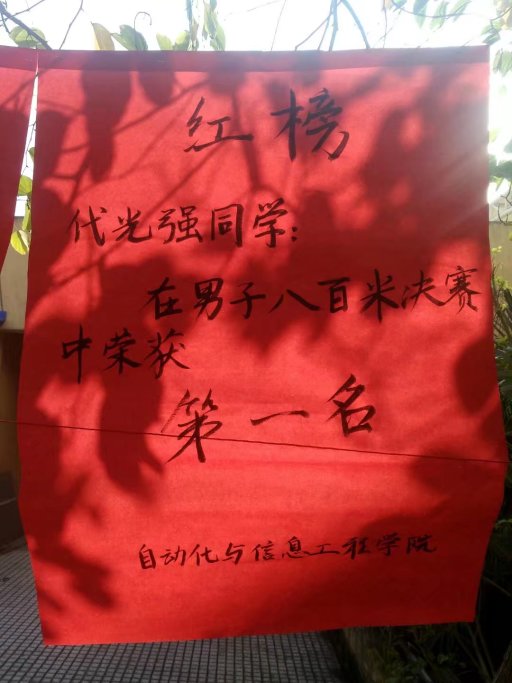 红榜
代光强同学:
在男子八百米决赛
中荣获
第一名
自动化与信息工程学院